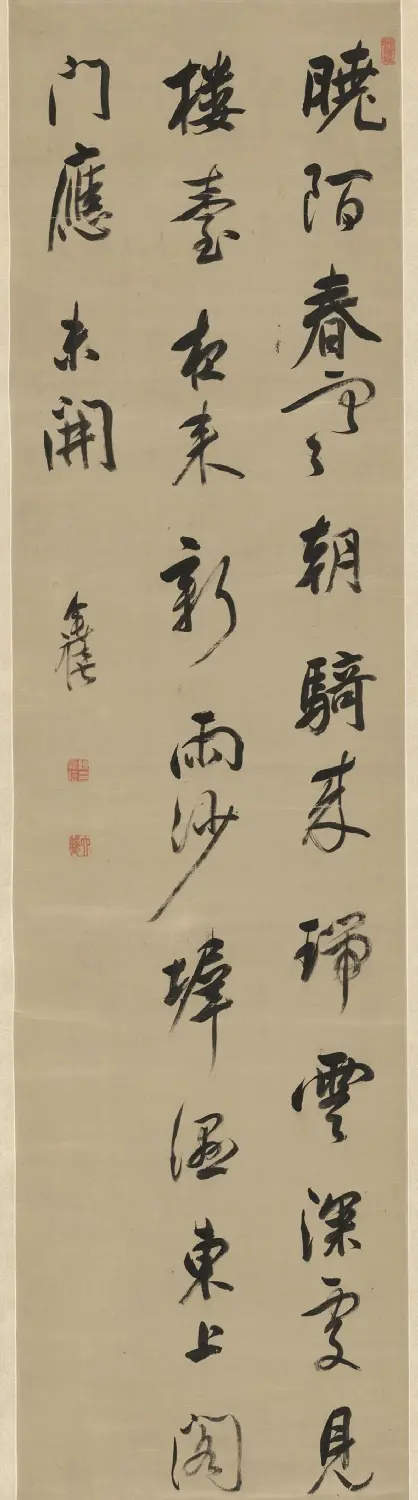 曉陌春寒朝騎來瑞雲深處見
樓臺夜來新雨沙墀濕東上閣
門應未開